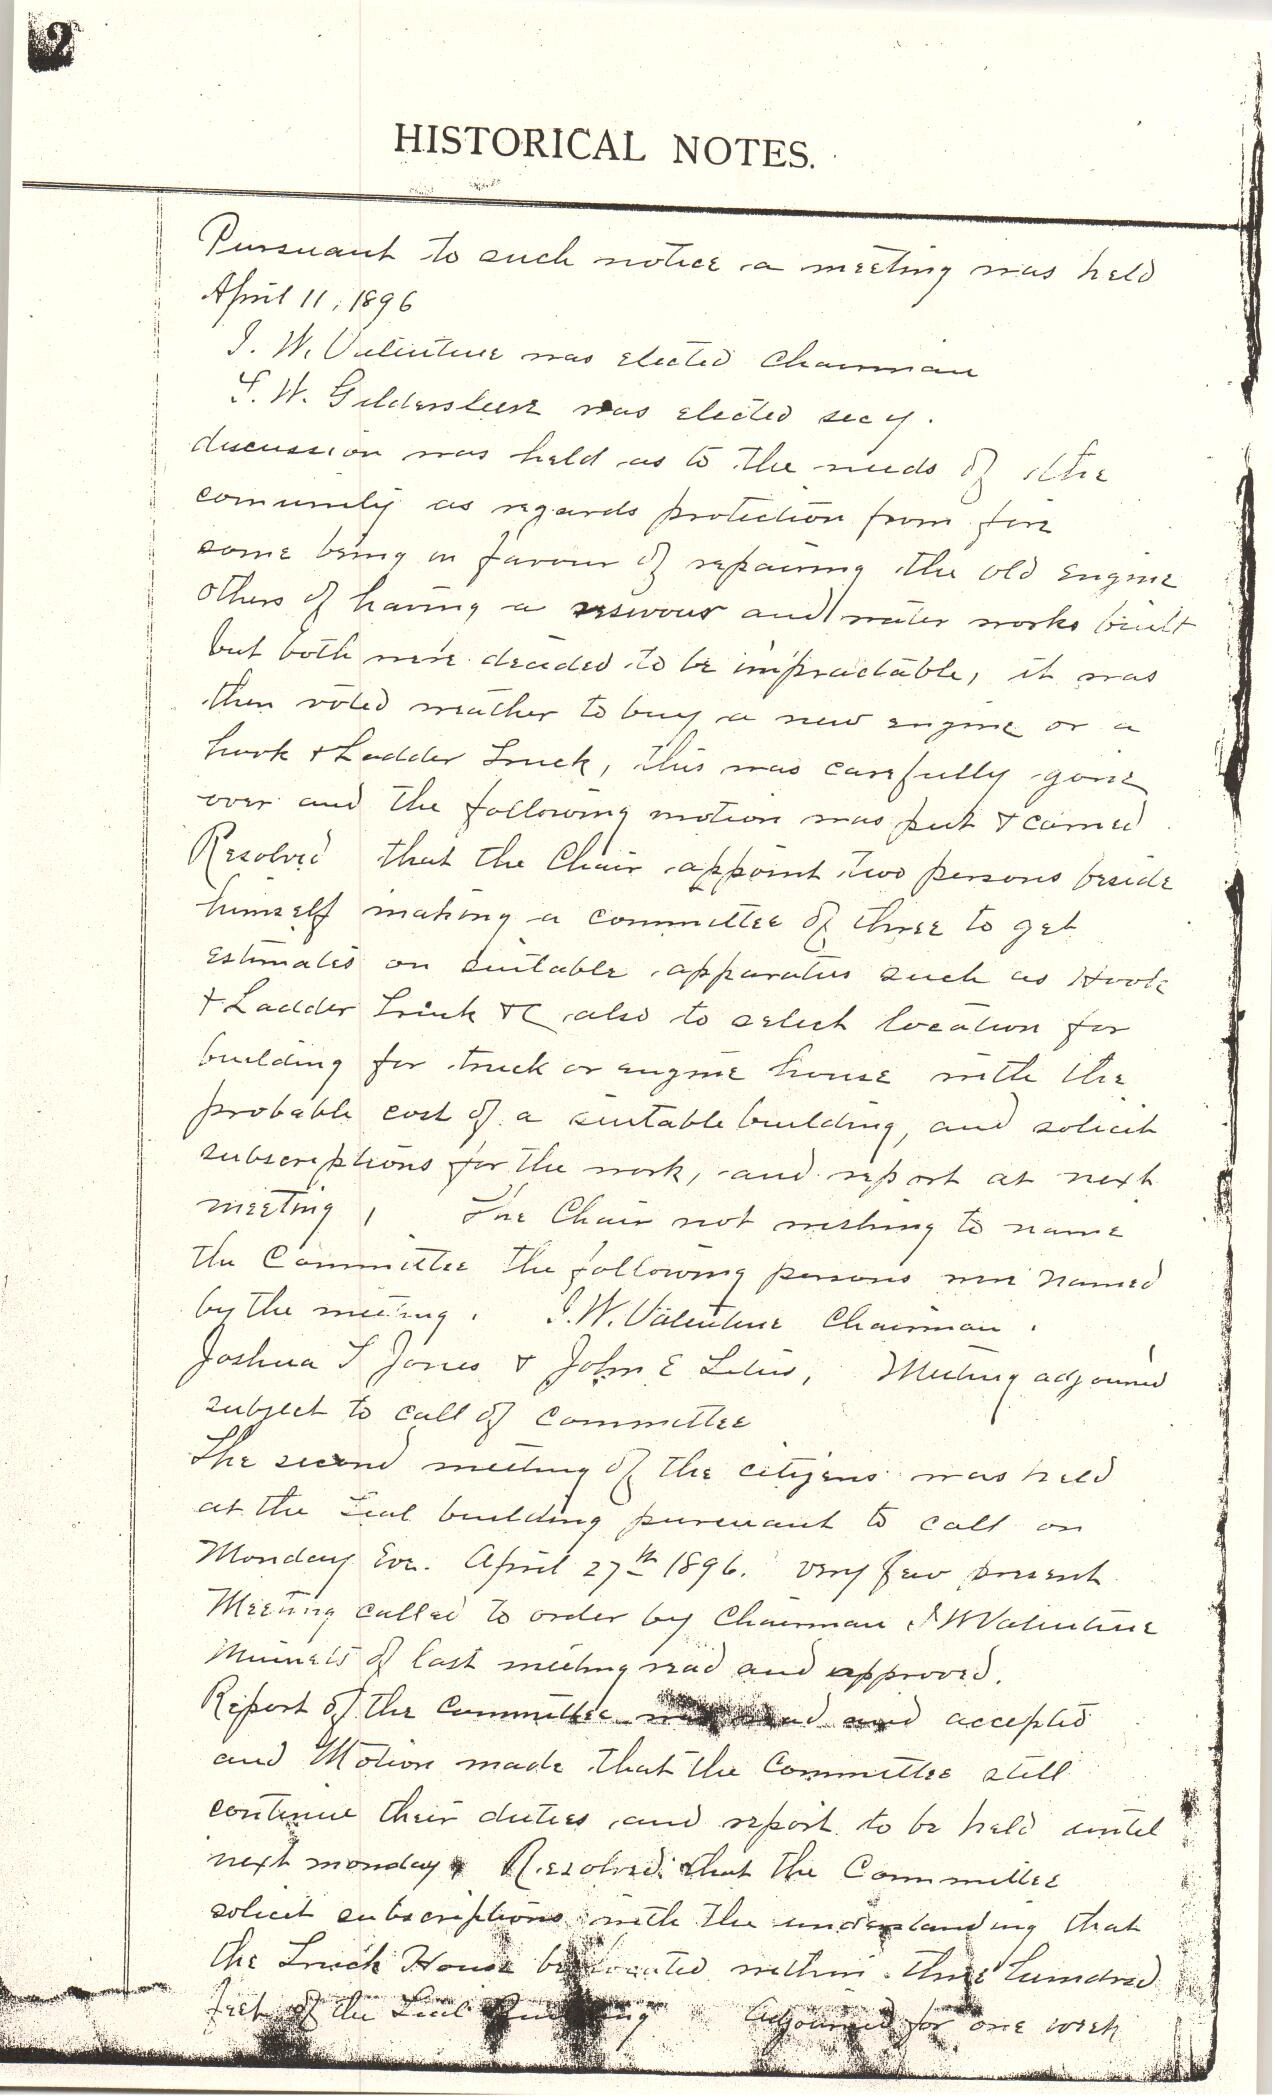 2
HISTORICAL NOTES.
Pursuant to such notice a meeting was held
April 11, 1896
I. W. Valentine was elected Chairman
F. W. Gildersleeve was elected secy.
discussion was held as to the needs of the
comunity as regards protection from fire
some being in favour of repairing the old engine
others of having a reservour and water works built
but both were decided to be impractable, it was
then voted weather to buy a new engine or a
hook & Ladder Truck, this was carefully gone
over and the following motion was put & carried
Resolved that the Chair appoint two persons beside
himself making a committee of three to get
estimates on suitable apparatus such as Hook
& Ladder Truck &C also to select location for
building for truck or engine house with the
probable cost of a suitable building, and solicit
subscriptions for the work, and report at next
meeting, The Chair not wishing to name
the Committee the following persons were named
by the meeting. I. W. Valentine Chairman.
Joshua T Jones & John E , Meeting adjourned
subject to call of Committee
The second meeting of the citizens was held
at the building pursuant to call on
Monday Eve. April 27th 1896. very few present
Meeting called to order by Chairman I W Valentine
Minnets of last meeting read and approved.
Report of the Committee was read and accepted
and Motion made that the Committee still
continue their duties and report to be held until
next monday. Resolved that the Committee
solicit subscriptions with the understanding that
the Truck House be located within three hundred
feet of the Building Adjourned for one week